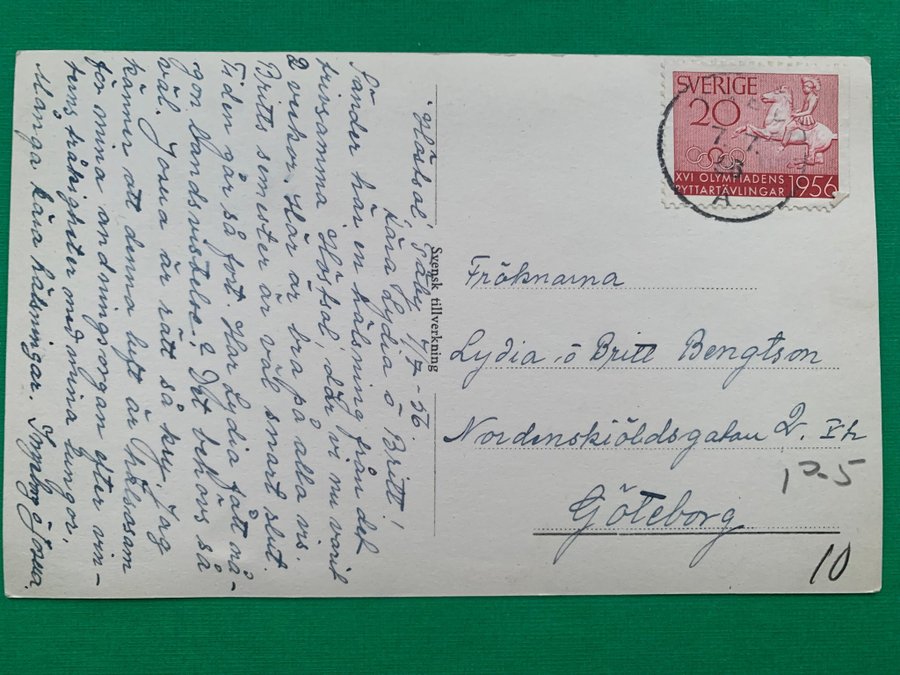 "Höstsol", Täby 7/7-56.
Kära Lydia o Britt!
Sänder här en hälsning från det
trivsamma Höstsol, där vi nu varit
2 veckor. Här är bra på alla vis.
Britts semester är väl snart slut.
Tiden går så fort. Har Lydia fått nå-
gon landsvistelse? Det behövs så
väl. Josua är rätt så kry. Jag
känner att denna luft är hälsosam
för mina andningsorgan efter vin-
terns tråkigheter med mina lungor.
Många kära hälsningar. Josua.
Svensk tillverkning
SVERIGE
20
XVI OLYMPIADENS
RYTTARTÄVLINGAR 1956
7. 7.
A
Fröknarna
Lydia o Britt Bengtson
Nordenskiöldsgatan 2. I h
Göteborg
10